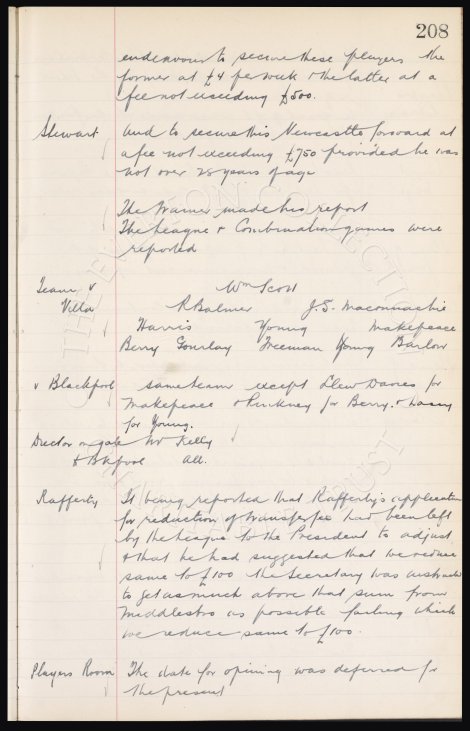 208
endeavour to secure these players the
former at £4 per week & the latter at a
fee not exceeding £500.
Stewart And to secure this Newcastle forward at
a fee not exceeding £750 provided he was
not over 28 years of age
The Trainer made his report
The League & Combination games were
reported
Team v Wm Scott
Villa R Balmer J.S. Maconnachie
Harris Young Makepeace
Berry Gourlay Freeman Young Barlow
v Blackpool same team except Llew Davies for
Makepeace & Pinkney for Berry. & Lacey
for Young.
Director on gate Mr Kelly
to B'kpool All.
Rafferty It being reported that Rafferty's application
for reduction of transfer fee had been left
by the League to the President to adjust
& that he had suggested that we reduce
same to £100 the Secretary was instructed
to get as much above that sum from
Middlesbro as possible failing which
we reduce same to £100.
Players Room The date for opening was deferred for
the present
THE EVERTON COLLECTION
TRUST